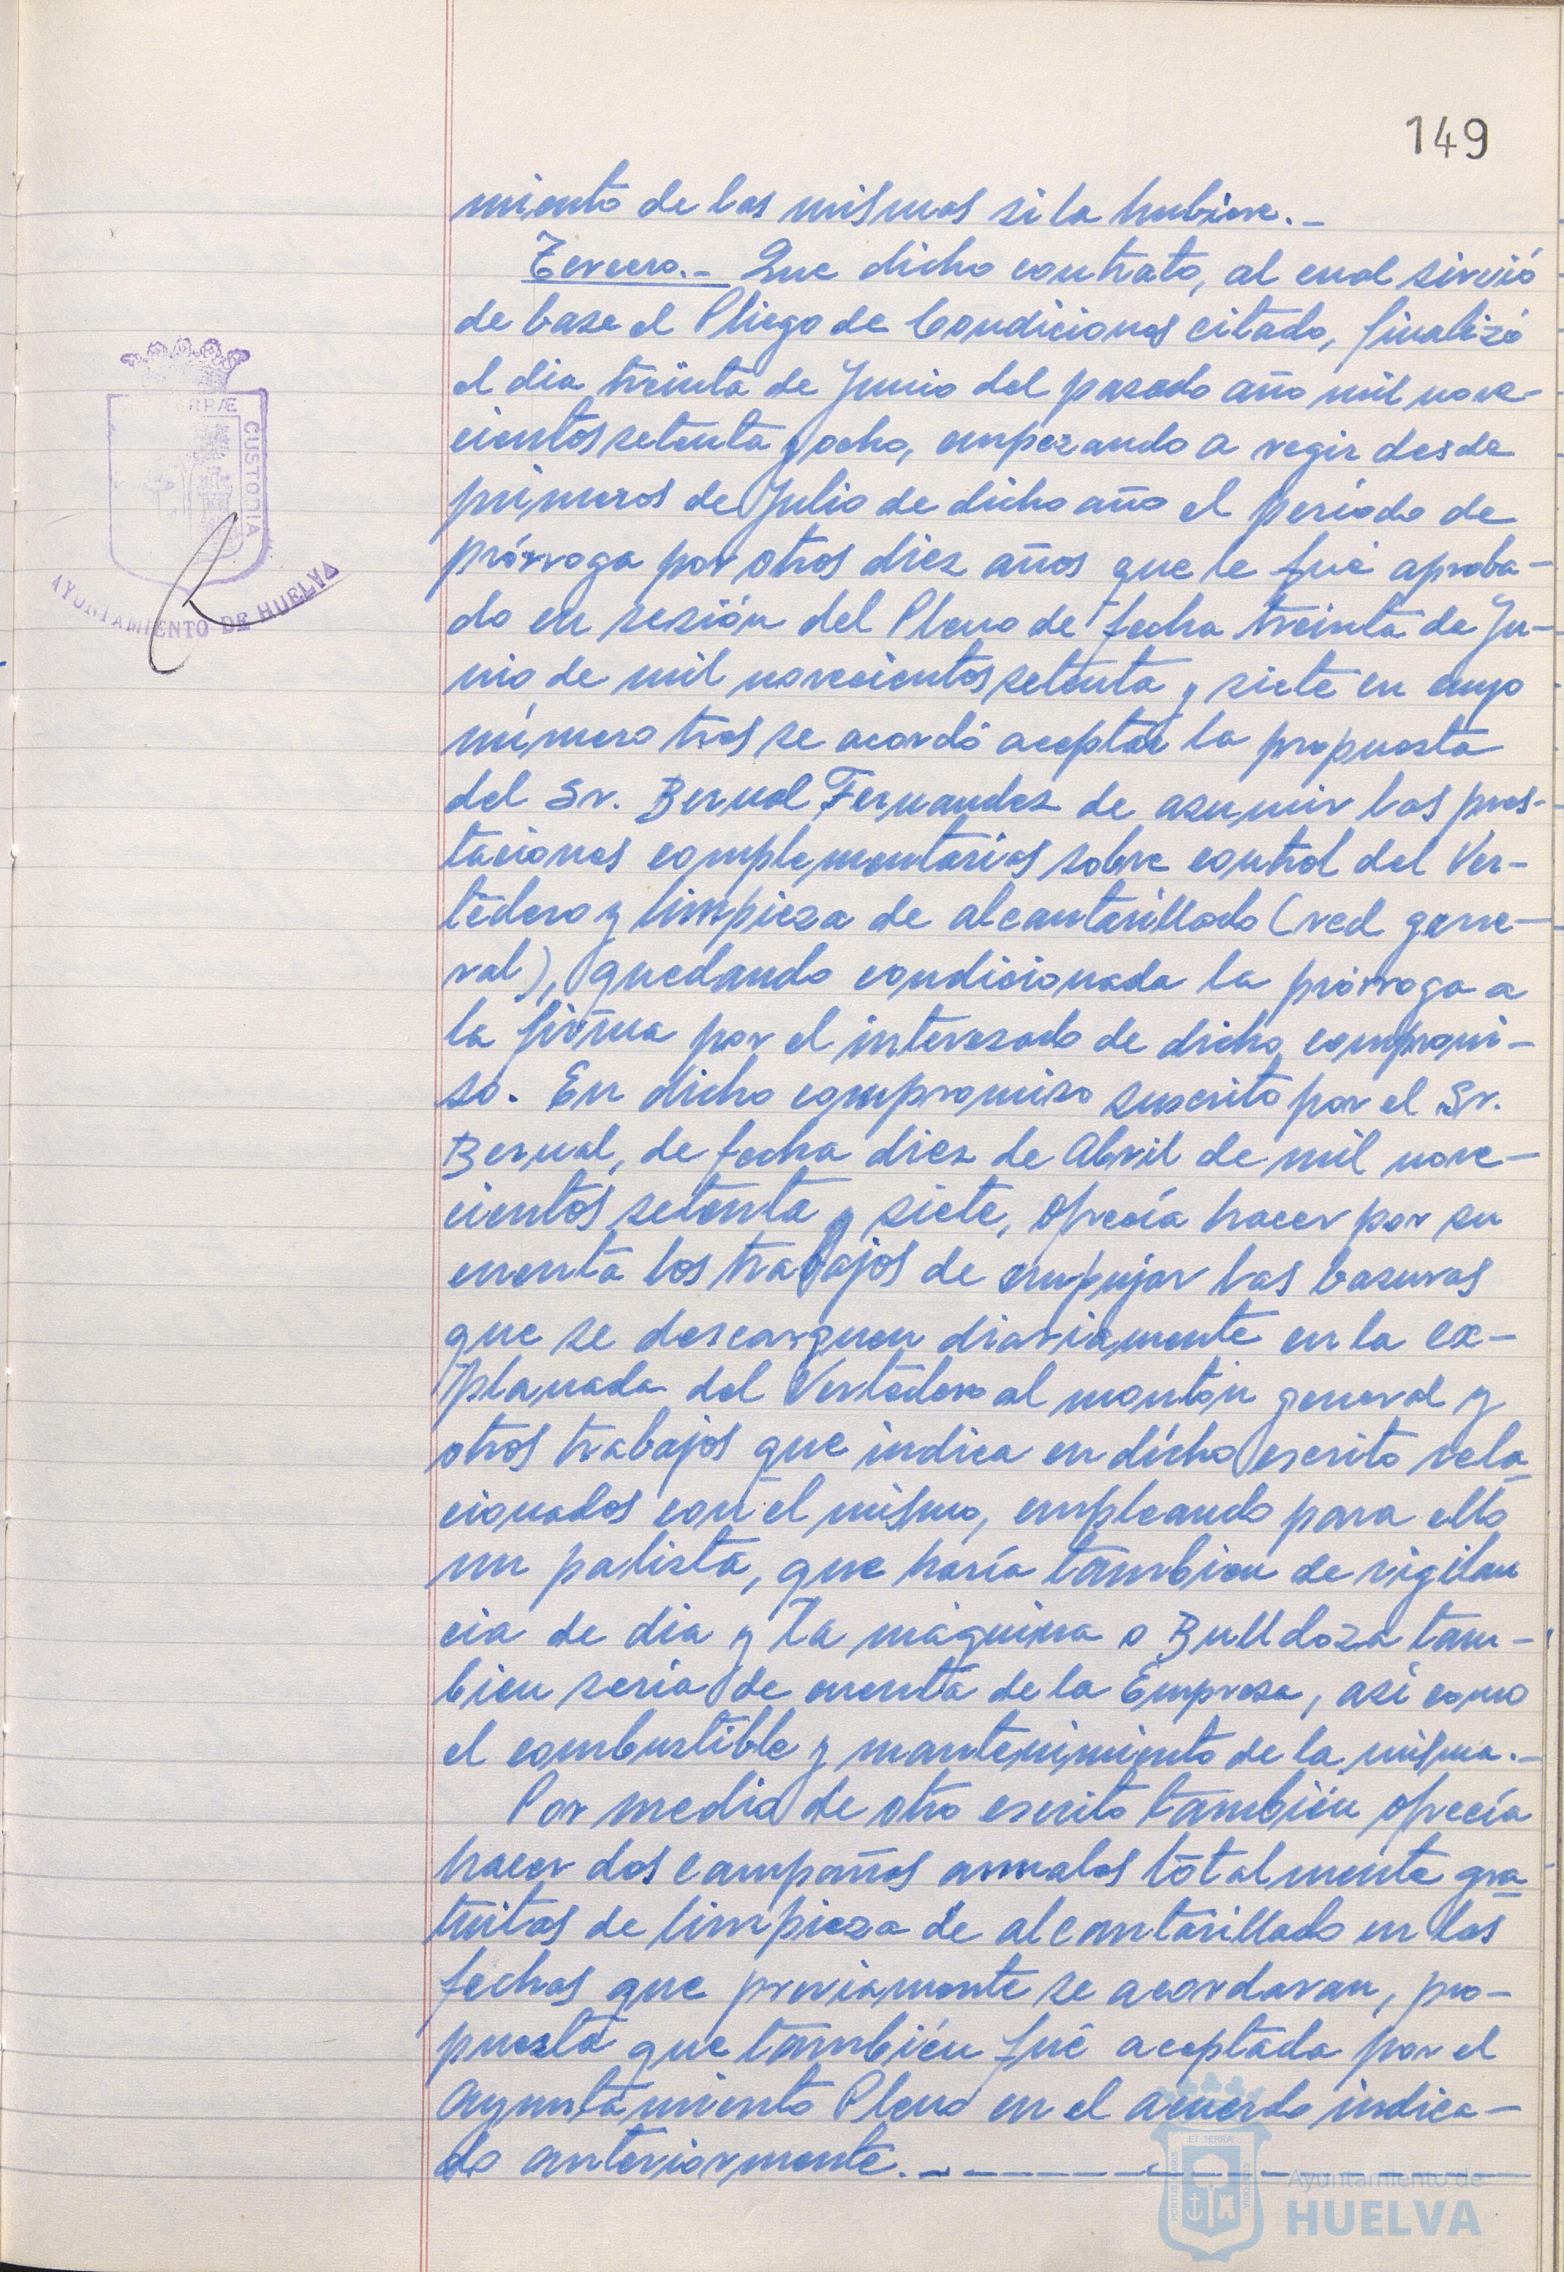 149
miento de las mismas si la hubiere.-
Tercero.- Que dicho contrato, al cual sirvió
de base el Pliego de Condiciones citado, finalizó
el dia treinta de Junio del pasado año mil nove-
cientos setenta y ocho, empezando a regir desde
primeros de Julio de dicho año el período de
prórroga por otros diez años que le fué aproba-
do en sesión del Pleno de fecha treinta de Ju-
nio de mil novecientos setenta y siete en cuyo
número tres se acordó aceptar la propuesta
del Sr. Bernal Fernandez de asumir las pres-
taciones complementarias sobre control del Ver-
tedero y limpieza de alcantarillado (red gene-
ral), quedando condicionada la prórroga a
la firma por el interesado de dicho compromi-
so. En dicho compromiso suscrito por el Sr.
Bernal, de fecha diez de Abril de mil nove-
cientos setenta y siete, ofrecía hacer por su
cuenta los trabajos de empujar las basuras
que se descarguen diariamente en la ex-
planada del Vertedero al montón general y
otros trabajos que indica en dicho escrito rela-
cionados con el mismo, empleando para ello
un palista, que haría tambien de vigilan
cia de dia y la máquina o Bulldoza tam-
bien sería de cuenta de la Empresa, así como
el combustible y mantenimiento de la misma.-
Por medio de otro escrito también ofrecía
hacer dos campañas anuales totalmente gra-
tuitas de limpieza de alcantarillado en las
fechas que previamente se acordaran, pro-
puesta que también fué aceptada por el
Ayuntamiento Pleno en el acuerdo indica-
do anteriormente.-
ERRÆ
CUSTODIA
AYUNTAMIENTO DE HUELVA
ET TERRÆ
CUSTODIA
Ayuntamiento de
HUELVA